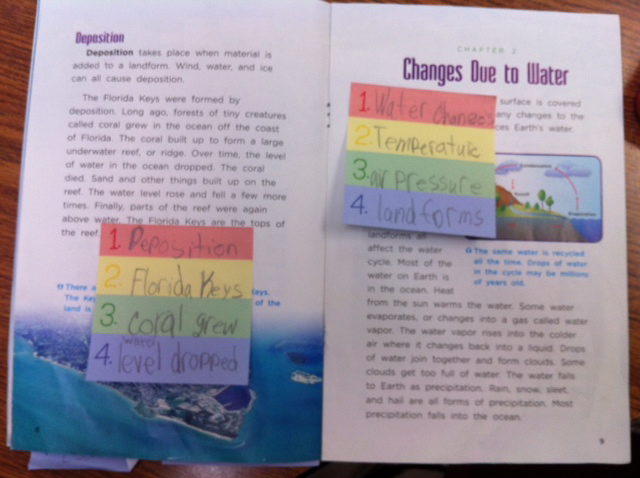 Deposition
Deposition takes place when material is
added to a landform. Wind, water, and ice
can all cause deposition.
The Florida Keys were formed by
deposition. Long ago, forests of tiny creatures
called coral grew in the ocean off the coast
of Florida. The coral built up to form a large
underwater reef, or ridge. Over time, the level
of water in the ocean dropped. The coral
died. Sand and other things built up on the
reef. The water level rose and fell a few more
times. Finally, parts of the reef were again
above water. The Florida Keys are the tops of
the reef.
1. Deposition
2. Florida Keys
3. coral grew
4. water level dropped
There a
The Key
of the
land is
8
CHAPTER 2
Changes Due to Water
1. Water Changes
2. Temperature
3. air pressure
4. landforms
surface is covered
any changes to the
ces Earth's water.
Condensation
Evaporation
The same water is recycled
all the time. Drops of water
in the cycle may be millions
of years old.
landforms all
affect the water
cycle. Most of the
water on Earth is
in the ocean. Heat
from the sun warms the water. Some water
evaporates, or changes into a gas called water
vapor. The water vapor rises into the colder
air where it changes back into a liquid. Drops
of water join together and form clouds. Some
clouds get too full of water. The water falls
to Earth as precipitation. Rain, snow, sleet,
and hail are all forms of precipitation. Most
precipitation falls into the ocean.
9